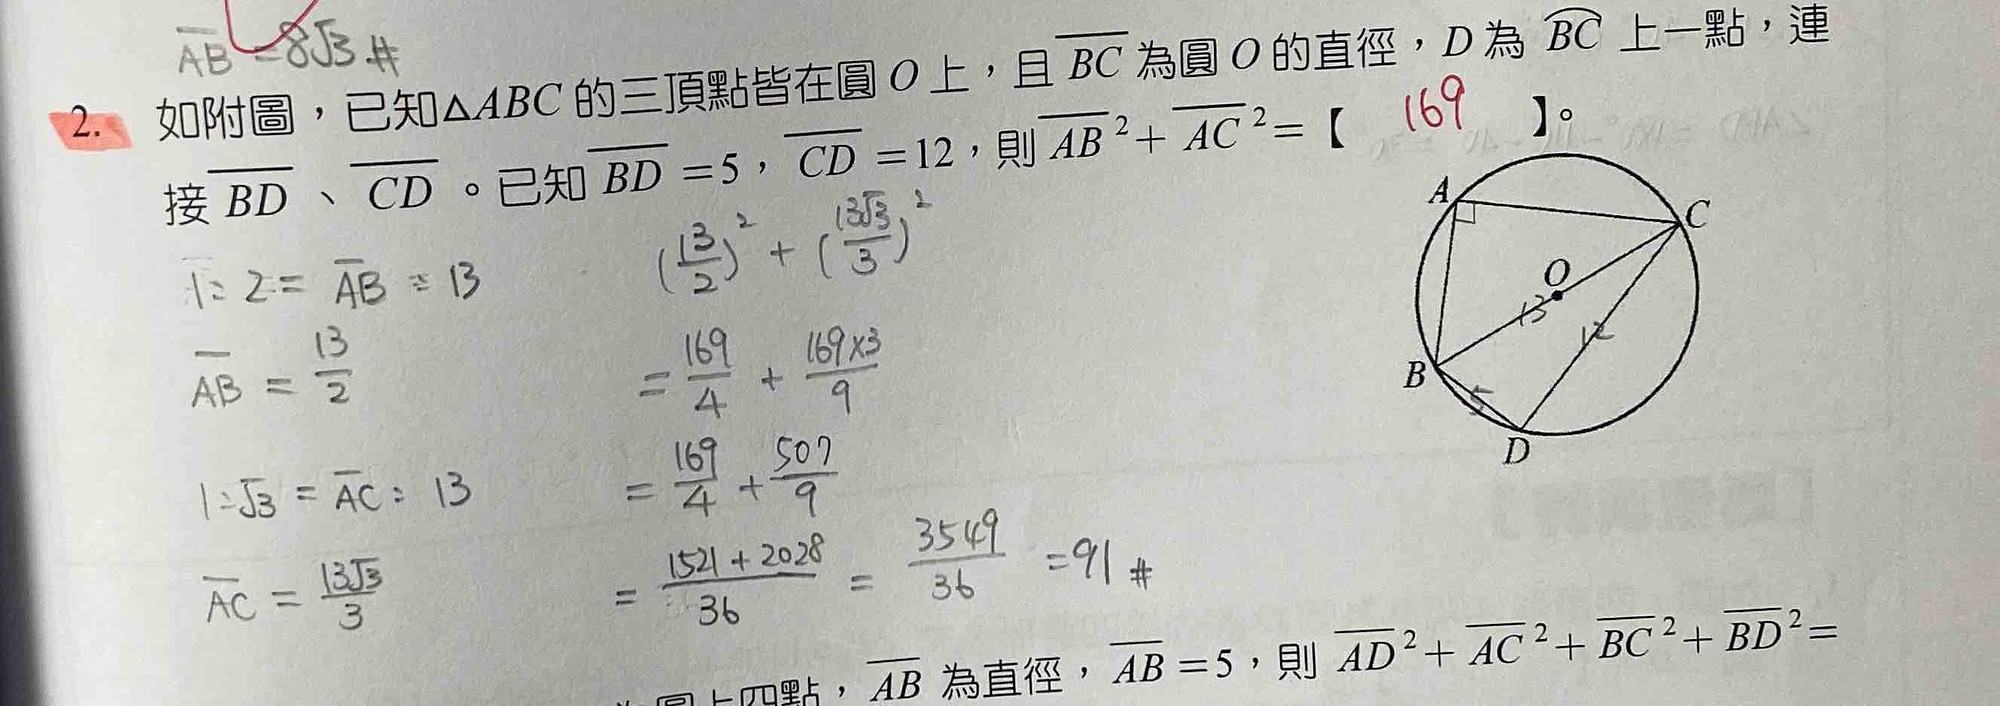 AB = 8√3 #
2. 如附圖，已知△ABC 的三頂點皆在圓 O 上，且 BC 為圓 O 的直徑，D 為 BC 上一點，連
接 BD 、 CD 。已知 BD =5， CD =12，則 AB² + AC² =【 169 】。
1:2 = AB : 13
AB = 13/2
1:√3 = AC : 13
AC = 13√3/3
(13/2)² + (13√3/3)²
= 169/4 + 169×3/9
= 169/4 + 507/9
= 1521+2028/36 = 3549/36 = 91 #
A
C
O
13
12
B
5
D
圓上四點， AB 為直徑， AB =5，則 AD² + AC² + BC² + BD² =